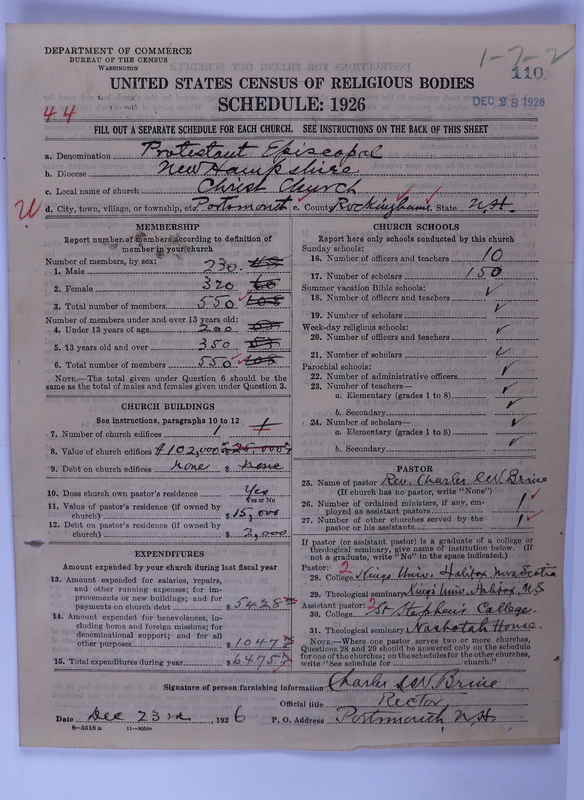 DEPARTMENT OF COMMERCE
BUREAU OF THE CENSUS
WASHINGTON
1-7-2
110
UNITED STATES CENSUS OF RELIGIOUS BODIES
SCHEDULE: 1926
DEC 28 1926
44
FILL OUT A SEPARATE SCHEDULE FOR EACH CHURCH. SEE INSTRUCTIONS ON THE BACK OF THIS SHEET
a. Denomination Protestant Episcopal
b. Diocese New Hampshire
c. Local name of church Christ Church
d. City, town, village, or township, etc. Portsmouth e. County Rockingham State N.H.
MEMBERSHIP
Report number of members according to definition of member in your church
Number of members, by sex:
1. Male 230
2. Female 320
3. Total number of members 550
Number of members under and over 13 years old:
4. Under 13 years of age 200
5. 13 years old and over 350
6. Total number of members 550
NOTE.—The total given under Question 6 should be the same as the total of males and females given under Question 3.
CHURCH BUILDINGS
See instructions, paragraphs 10 to 12
7. Number of church edifices 1
8. Value of church edifices $102,000
9. Debt on church edifices none $ none
10. Does church own pastor's residence Yes
Yes or No
11. Value of pastor's residence (if owned by church) $15,000
12. Debt on pastor's residence (if owned by church) $2,000
EXPENDITURES
Amount expended by your church during last fiscal year
13. Amount expended for salaries, repairs, and other running expenses; for improvements or new buildings; and for payments on church debt $5428
14. Amount expended for benevolences, including home and foreign missions; for denominational support; and for all other purposes $1047
15. Total expenditures during year $6475
CHURCH SCHOOLS
Report here only schools conducted by this church
Sunday schools:
16. Number of officers and teachers 10
17. Number of scholars 150
Summer vacation Bible schools:
18. Number of officers and teachers
19. Number of scholars
Week-day religious schools:
20. Number of officers and teachers
21. Number of scholars
Parochial schools:
22. Number of administrative officers
23. Number of teachers—
a. Elementary (grades 1 to 8)
b. Secondary
24. Number of scholars—
a. Elementary (grades 1 to 8)
b. Secondary
PASTOR
25. Name of pastor Rev. Charles LeV Brine
(If church has no pastor, write "None")
26. Number of ordained ministers, if any, employed as assistant pastors 1
27. Number of other churches served by the pastor or his assistants 1
If pastor (or assistant pastor) is a graduate of a college or theological seminary, give name of institution below. (If not a graduate, write "No" in the space indicated.)
Pastor: 2
28. College Kings Univ. Halifax, Nova Scotia
29. Theological seminary Kings Univ. Halifax, N.S
Assistant pastor: 2
30. College St Stephen's College
31. Theological seminary Nashotah House.
NOTE.—Where one pastor serves two or more churches, Questions 28 and 29 should be answered only on the schedule for one of the churches; on the schedules for the other churches, write "See schedule for church."
Signature of person furnishing information Charles LeV Brine
Official title Rector
Date Dec 23rd, 1926 P. O. Address Portsmouth N.H.
8-5518a 11-9050